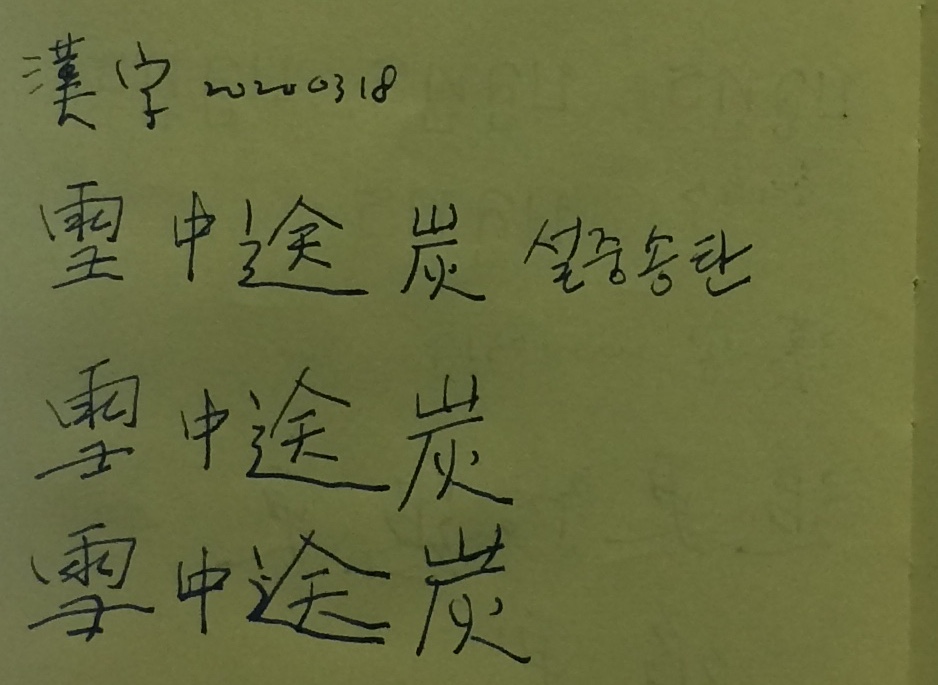 漢字 20200318
雪中送炭 설중송탄
雪中送炭
雪中送炭